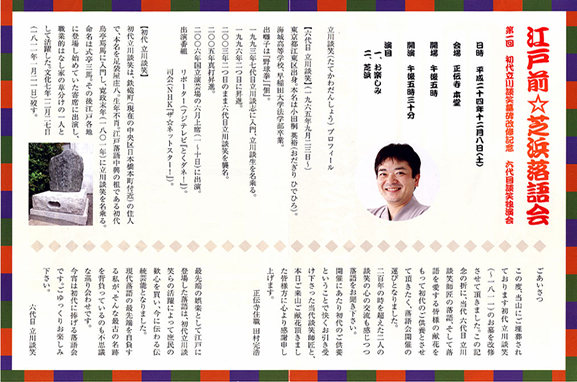 江戸前☆芝浜落語会
第一回 初代立川談笑墓碑改修記念 六代目談笑独演会
日時 平成二十四年十二月八日(土)
会場 正伝寺 本堂
開場 午後五時
開演 午後五時三十分
演目
一、お楽しみ
二、芝浜
立川談笑(たてかわだんしょう)プロフィール
【六代目 立川談笑】(一九六五年九月二三日~)
東京都江東区出身。本名は小田桐 英裕(おだぎり ひでひろ)。
海城高等学校、早稲田大学法学部卒業。
出囃子は「野球拳」「梅」。
一九九三年七代目立川談志に入門、立川談生を名乗る。
一九九六年二つ目に昇進。
二〇〇三年二つ目のまま六代目立川談笑を襲名。
二〇〇五年真打昇進。
二〇〇六年国立演芸場の六月上席(一~十日)に出演。
出演番組 リポーター(フジテレビ「とくダネ!」)、
司会(NHK「ザ☆ネットスター!」)。
【初代 立川談笑】
初代立川談笑は、鉄輪町(現在の中央区日本橋本町付近)の住人
で、本名を足袋屋庄八。生年不肖。江戸落語中興の祖である初代
烏亭焉馬に入門し、寛政末年(一八〇一年)に立川談笑を名乗る。
命名は式亭三馬。その後江戸各地
に登場し始めていた寄席に出演し、
職業的はなし家の草分けの一人と
して活躍した。文化七年十二月二日
(一八一一年一月二一日)歿す。
ごあいさつ
この度、当山にご埋葬され
ております初代 立川談笑
(~一八一一)の墓を改修
させて頂きました。この記
念の折に、当代 六代目 立川
談笑師匠の落語、そして落
語を愛する皆様の献花を
もって初代のご供養とさせ
て頂きたく、落語会開催の
運びとなりました。
二百年の時を超えた二人の
談笑の心の交流も感じつつ
落語をお聞き下さい。
開催にあたり初代のご供養
ということで快くお引き受
け下さった当代談笑師匠と、
本日ご来山ご献花頂きまし
た皆様方に心より感謝申し
上げます。
正伝寺住職 田村完浩
最先端の娯楽として江戸に
登場した落語は、初代立川談
笑らの活躍によって庶民の
歓心を買い、今に伝わる伝
統芸能となりました。
現代落語の最先端を自負す
る私が、そんな最古の名跡
を背負っているのも不思議
な巡り合わせです。
今宵は初代に捧げる落語会
です。ごゆっくりお楽しみ
下さい。
六代目 立川談笑